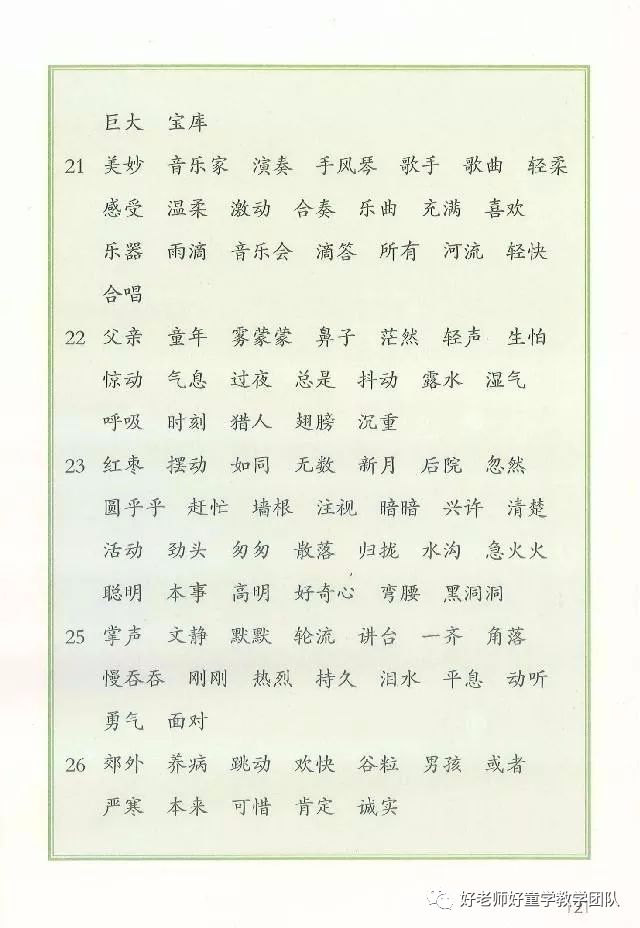 巨大 宝库
21 美妙 音乐家 演奏 手风琴 歌手 歌曲 轻柔
感受 温柔 激动 合奏 乐曲 充满 喜欢
乐器 雨滴 音乐会 滴答 所有 河流 轻快
合唱
22 父亲 童年 雾蒙蒙 鼻子 茫然 轻声 生怕
惊动 气息 过夜 总是 抖动 露水 湿气
呼吸 时刻 猎人 翅膀 沉重
23 红枣 摆动 如同 无数 新月 后院 忽然
圆乎乎 赶忙 墙根 注视 暗暗 兴许 清楚
活动 劲头 匆匆 散落 归拢 水沟 急火火
聪明 本事 高明 好奇心 弯腰 黑洞洞
25 掌声 文静 默默 轮流 讲台 一齐 角落
慢吞吞 刚刚 热烈 持久 泪水 平息 动听
勇气 面对
26 郊外 养病 跳动 欢快 谷粒 男孩 或者
严寒 本来 可惜 肯定 诚实
好老师好童学教学团队
121